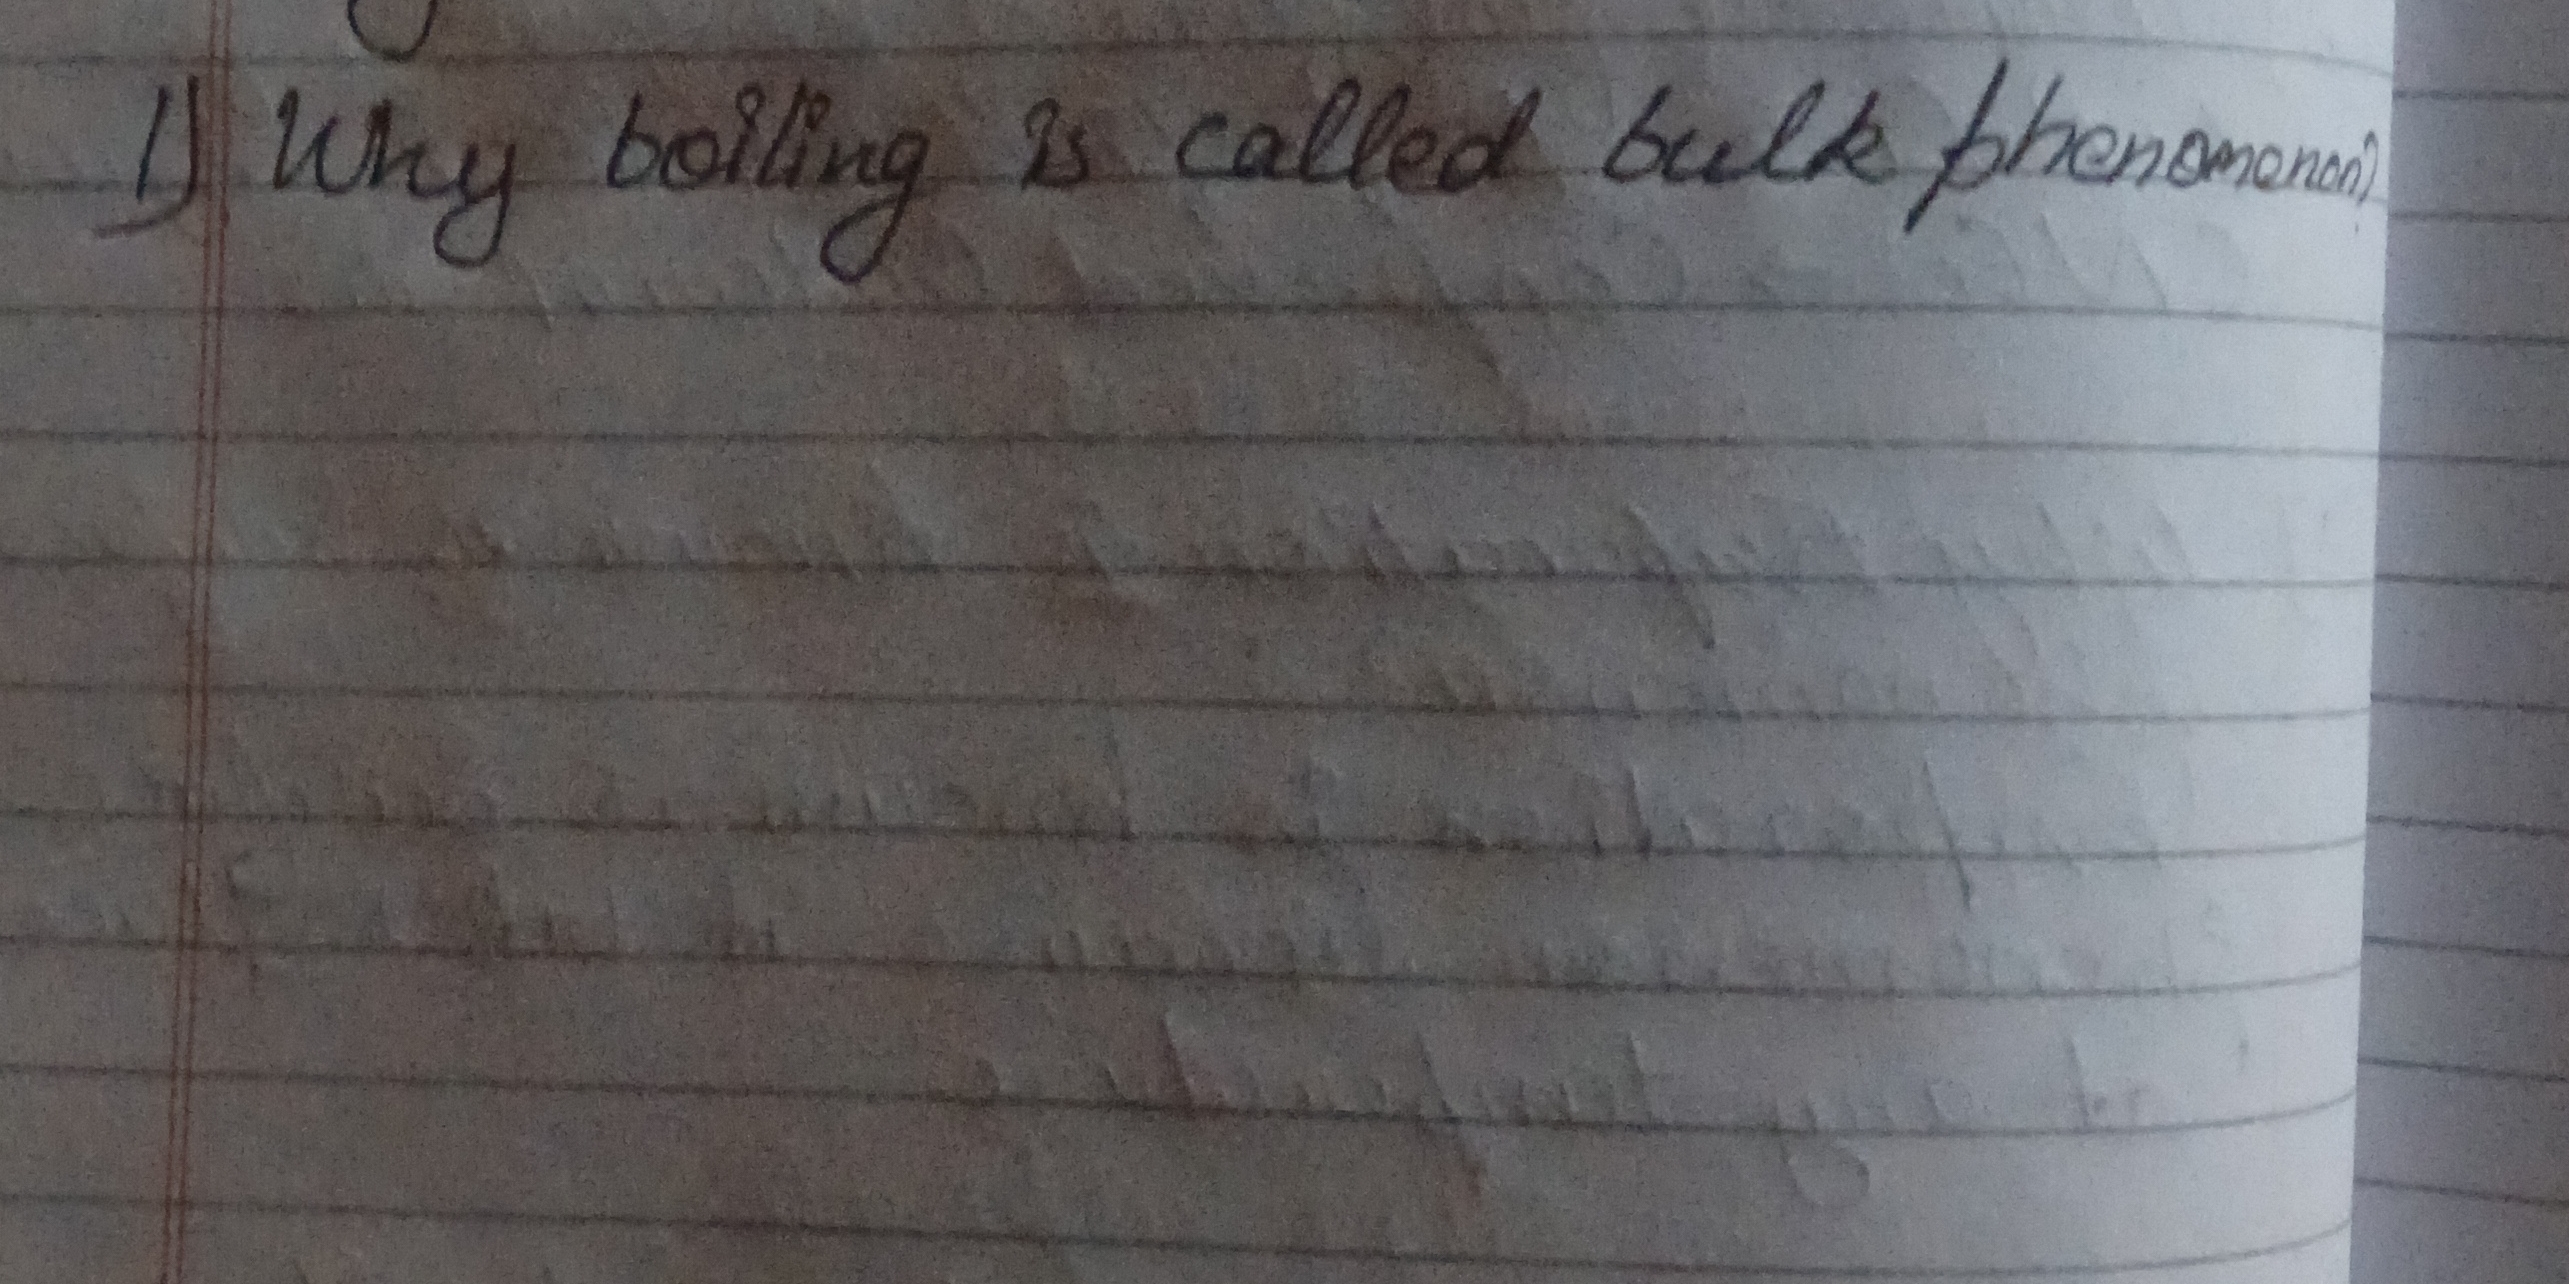 1) Why boiling is called bulk phenomenon?